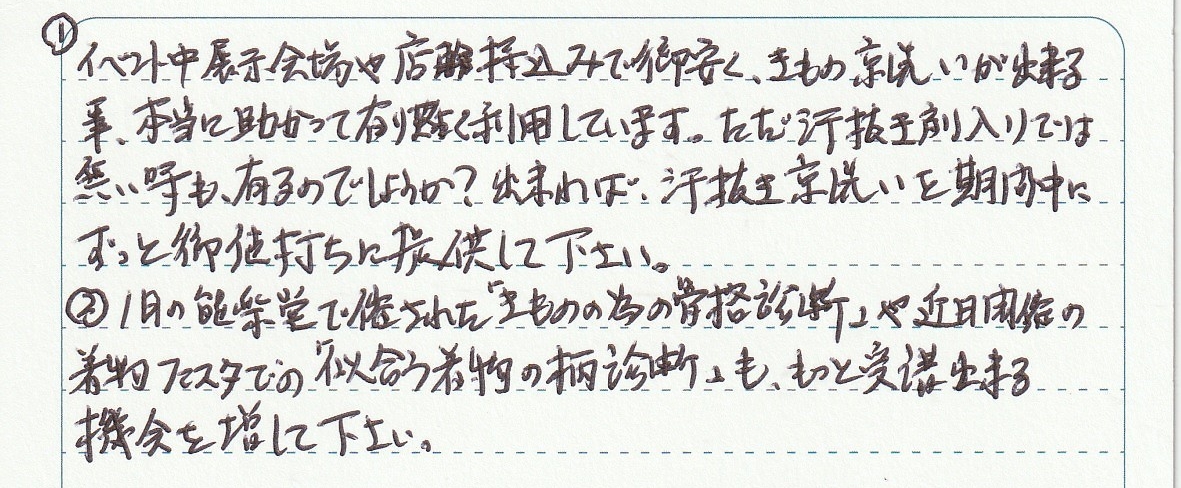 ①イベント中展示会場や店舗持込みで御安く、きもの京洗いが出来る
事、本当に助かって有り難く利用しています。ただ汗抜き別入りでは
無い時も、有るのでしょうか?出来れば、汗抜き京洗いを期間中に
ずっと御値打ちに提供して下さい。
②1日の能楽堂で催された「きものの為の骨格診断」や近日開催の
着物フェスタでの「似合う着物の柄診断」も、もっと受講出来る
機会を増して下さい。